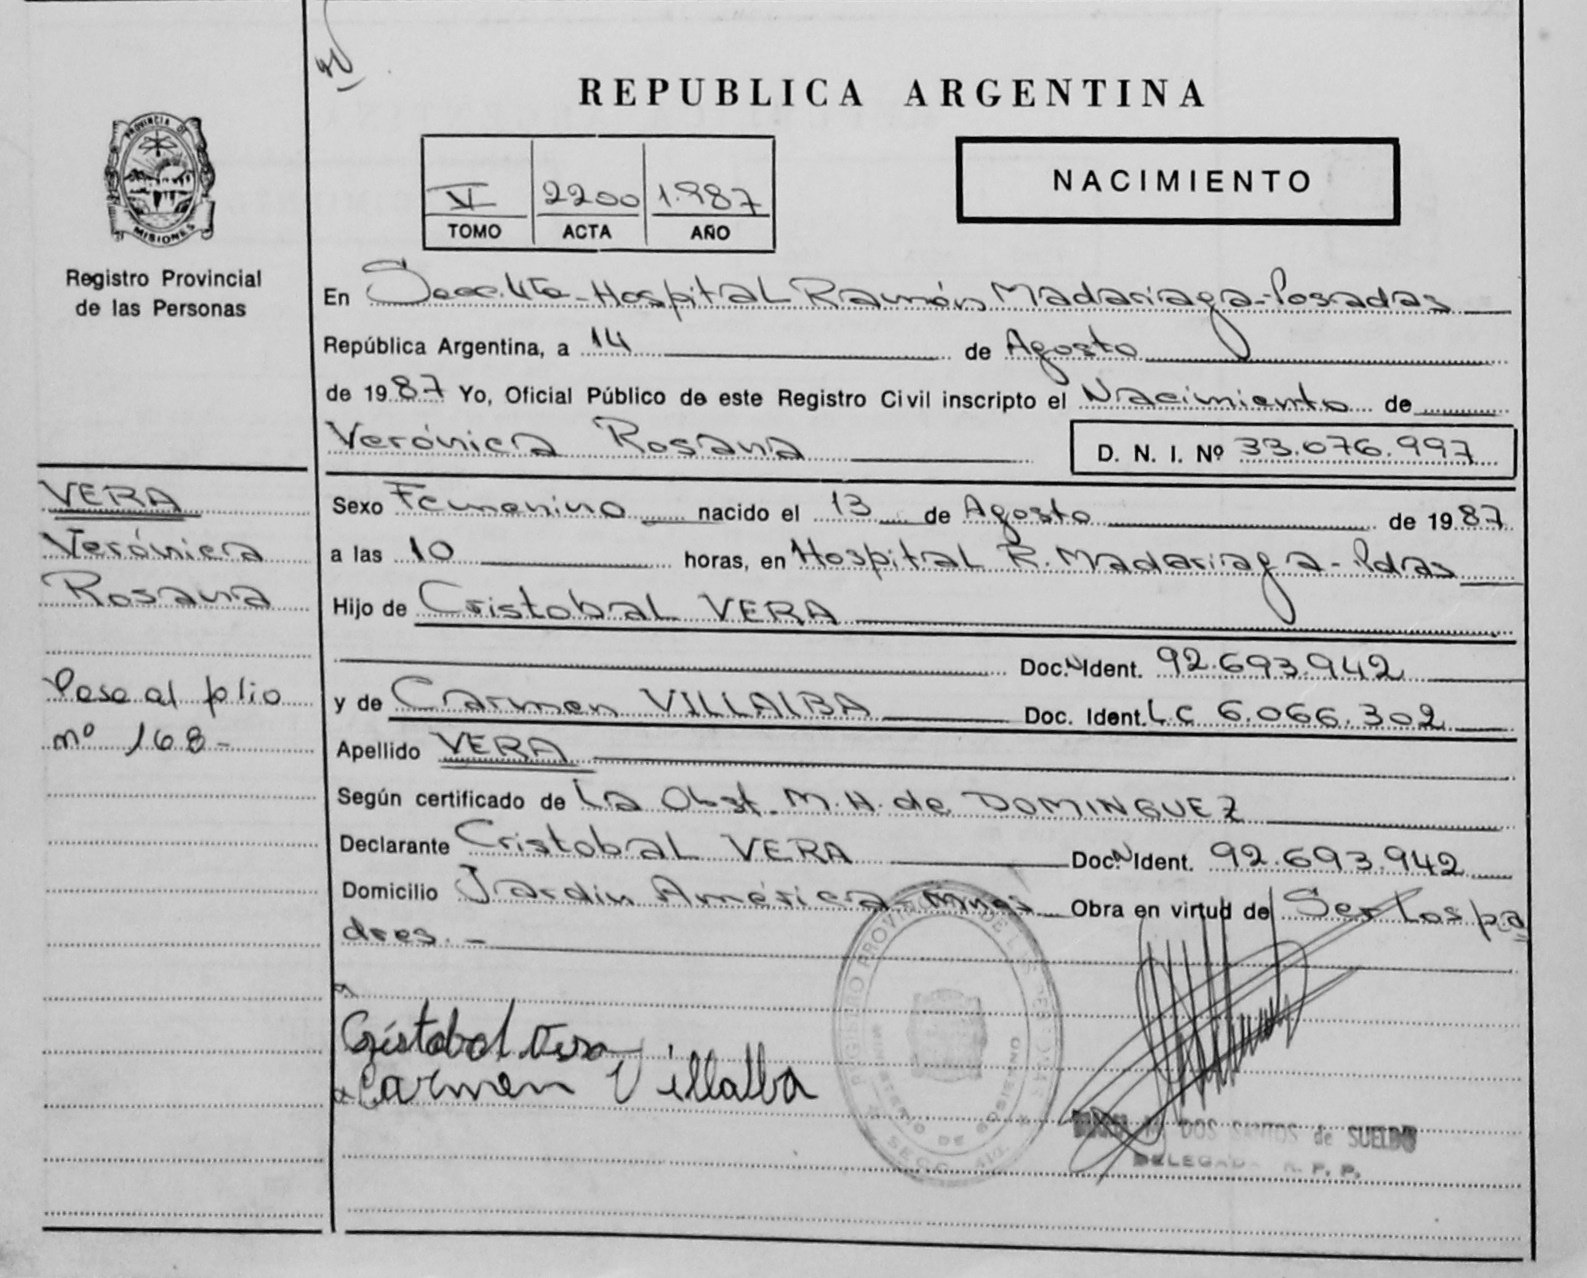 REPUBLICA ARGENTINA
PROVINCIA DE
MISIONES
Registro Provincial
de las Personas
NACIMIENTO
VI 2200 1.987
TOMO ACTA AÑO
En Secc. 4ta - Hospital Ramón Madariaga - Posadas
República Argentina, a 14 de Agosto
de 1987 Yo, Oficial Público de este Registro Civil inscripto el Nacimiento de
Verónica Rosana D. N. I. Nº 33.076.997
VERA
Verónica
Rosana
Pase al folio
nº 168-
Sexo Femenino nacido el 13 de Agosto de 1987
a las 10 horas, en Hospital R. Madariaga - Pdas
Hijo de Cristobal VERA
Doc. N Ident. 92.693.942
y de Carmen VILLALBA Doc. Ident. L.C 6.066.302
Apellido VERA
Según certificado de La Obst. M. H. de DOMINGUEZ
Declarante Cristobal VERA Doc. N Ident. 92.693.942
Domicilio Jardín América - Mnes Obra en virtud de Ser los pa
dres. -
Cristobal Vera
Carmen Villalba
REGISTRO PROVINCIAL DE LAS PERSONAS
MINISTERIO DE GOBIERNO
SECC. 4ta.
DOS SANTOS de SUELDO
DELEGADA R. P. P.